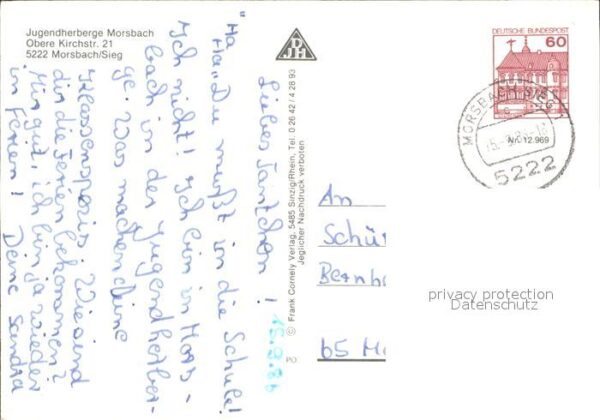 Jugendherberge Morsbach
Obere Kirchstr. 21
5222 Morsbach/Sieg
"Ha
Ha" Du mußt in die Schule!
Ich nicht! Ich bin in Mors-
bach in der Jugendherber-
ge. Was machen Deine
Wie sind
dir die Ferien bekommen?
Mir gut, ich bin ja wieder
in Ferien! Deine Sandra
Liebes Tantchen!
© Frank Cornely Verlag, 5485 Sinzig/Rhein, Tel. 0 26 42 / 4 28 93
Jeglicher Nachdruck verboten
PO
DEUTSCHE BUNDESPOST
60
MORSBACH, SIEG
5222
Nr. 12.969
An
Schü
Bernh
65 M
privacy protection
Datenschutz